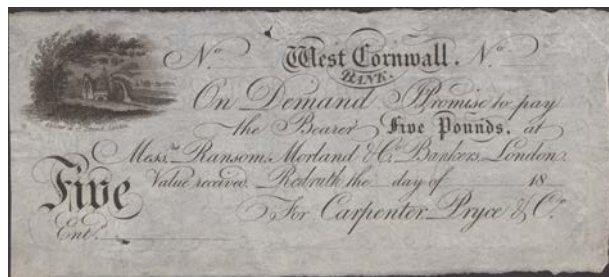 No. West Cornwall. No.
BANK.
On Demand I Promise to pay
the Bearer Five Pounds. at
Messrs. Ransom, Morland & Co. Bankers, London.
Value received. Redruth the day of 18
For Carpenter, Pryce & Co.
Five
Entd.